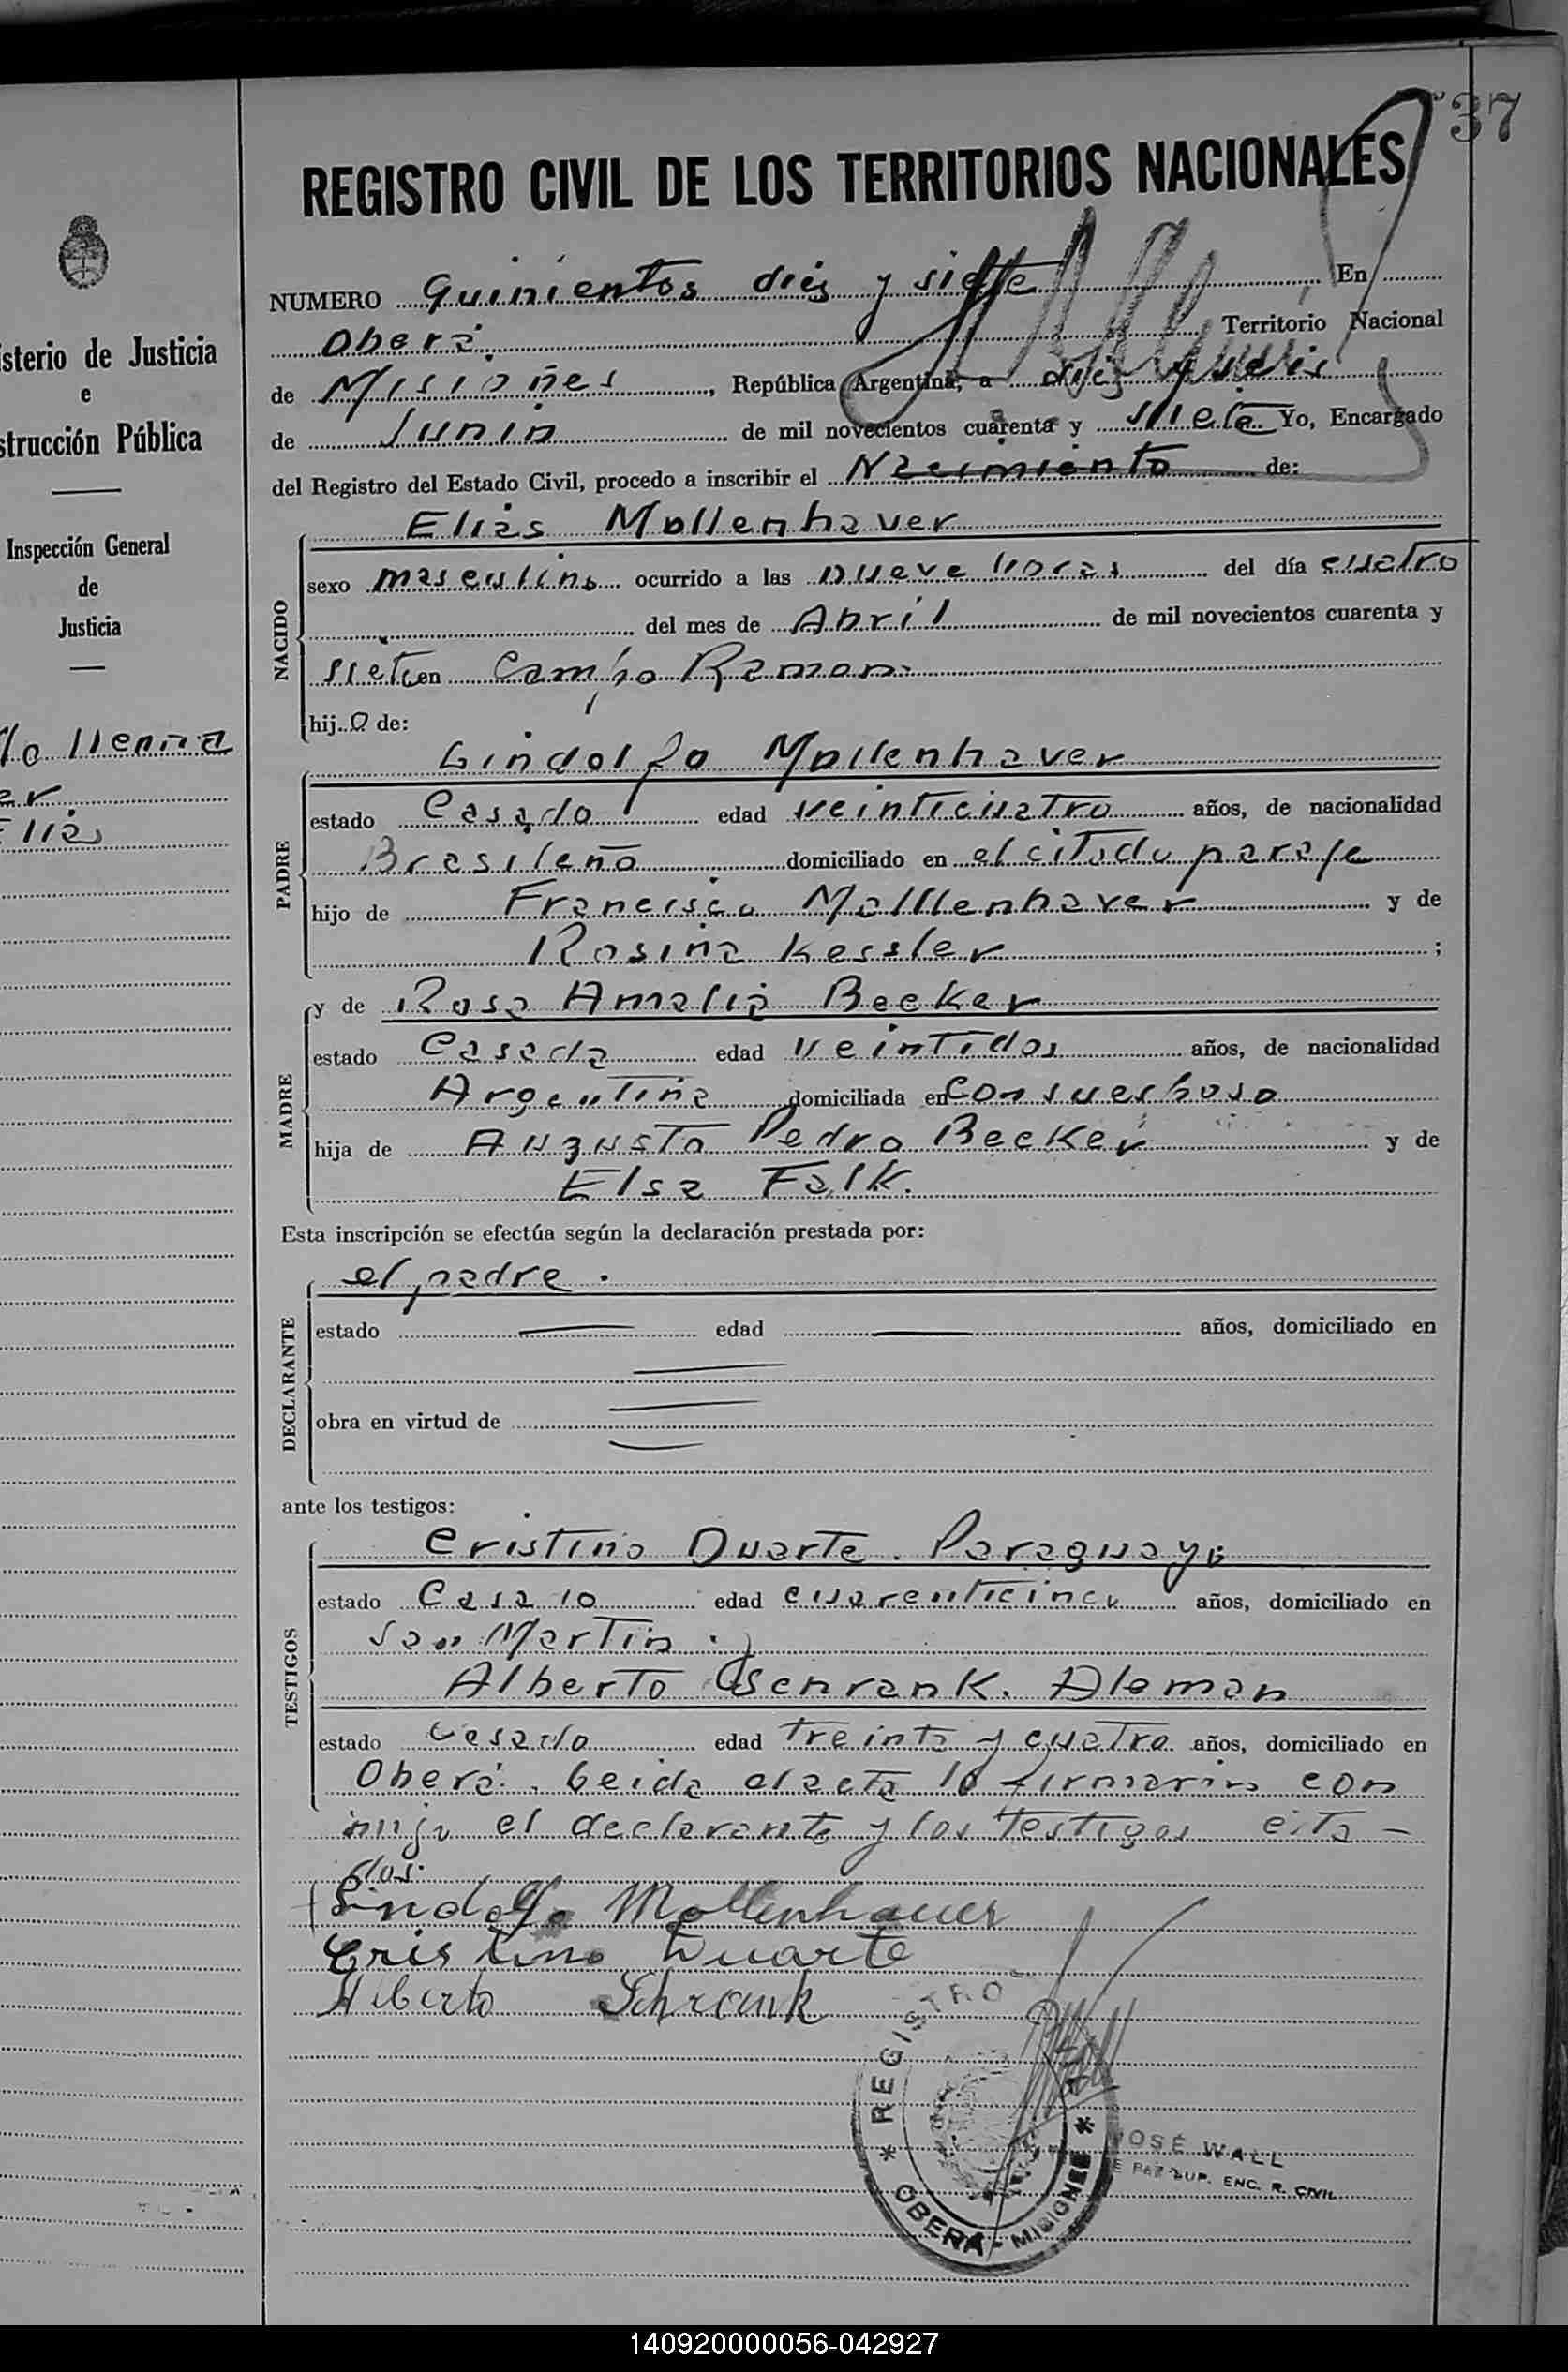 37
REGISTRO CIVIL DE LOS TERRITORIOS NACIONALES
NUMERO Quinientos diés y siete En
Oberá. Territorio Nacional
de Misiones, República Argentina, a diés y seis
de Junio de mil novecientos cuarenta y siete Yo, Encargado
del Registro del Estado Civil, procedo a inscribir el Nacimiento de:
NACIDO
Elias Mollenhaver
sexo masculino ocurrido a las nueve horas del día cuatro
del mes de Abril de mil novecientos cuarenta y
siete en Campo Ramon
hijo de:
PADRE
Lindolfo Mollenhaver
estado Casado edad veinticuatro años, de nacionalidad
Brasileño domiciliado en el citado paraje
hijo de Francisco Molllenhaver y de
Rosina Kessler ;
MADRE
y de Rosa Amalia Becker
estado Casada edad veintidos años, de nacionalidad
Argentina domiciliada en con su esposo
hija de Augusto Pedro Becker y de
Elsa Falk.
Esta inscripción se efectúa según la declaración prestada por:
DECLARANTE
el padre.
estado — edad — años, domiciliado en
obra en virtud de
ante los testigos:
TESTIGOS
Cristino Duarte. Paraguayo
estado Casado edad cuarenticinco años, domiciliado en
San Martin. y
Alberto Schrank. Aleman
estado casado edad treinta y cuatro años, domiciliado en
Oberá. Leida el acta la firmaron con
migo el declarante y los testigos cita-
dos.
Lindolfo Mollenhauer
Cristino Duarte
Alberto Schrank
REGISTRO
* OBERÁ - MISIONES *
JOSÉ WALL
E PAZ SUP. ENC. R. CIVIL
isterio de Justicia
e
strucción Pública
Inspección General
de
Justicia
ollenha
er
Elias
140920000056-042927